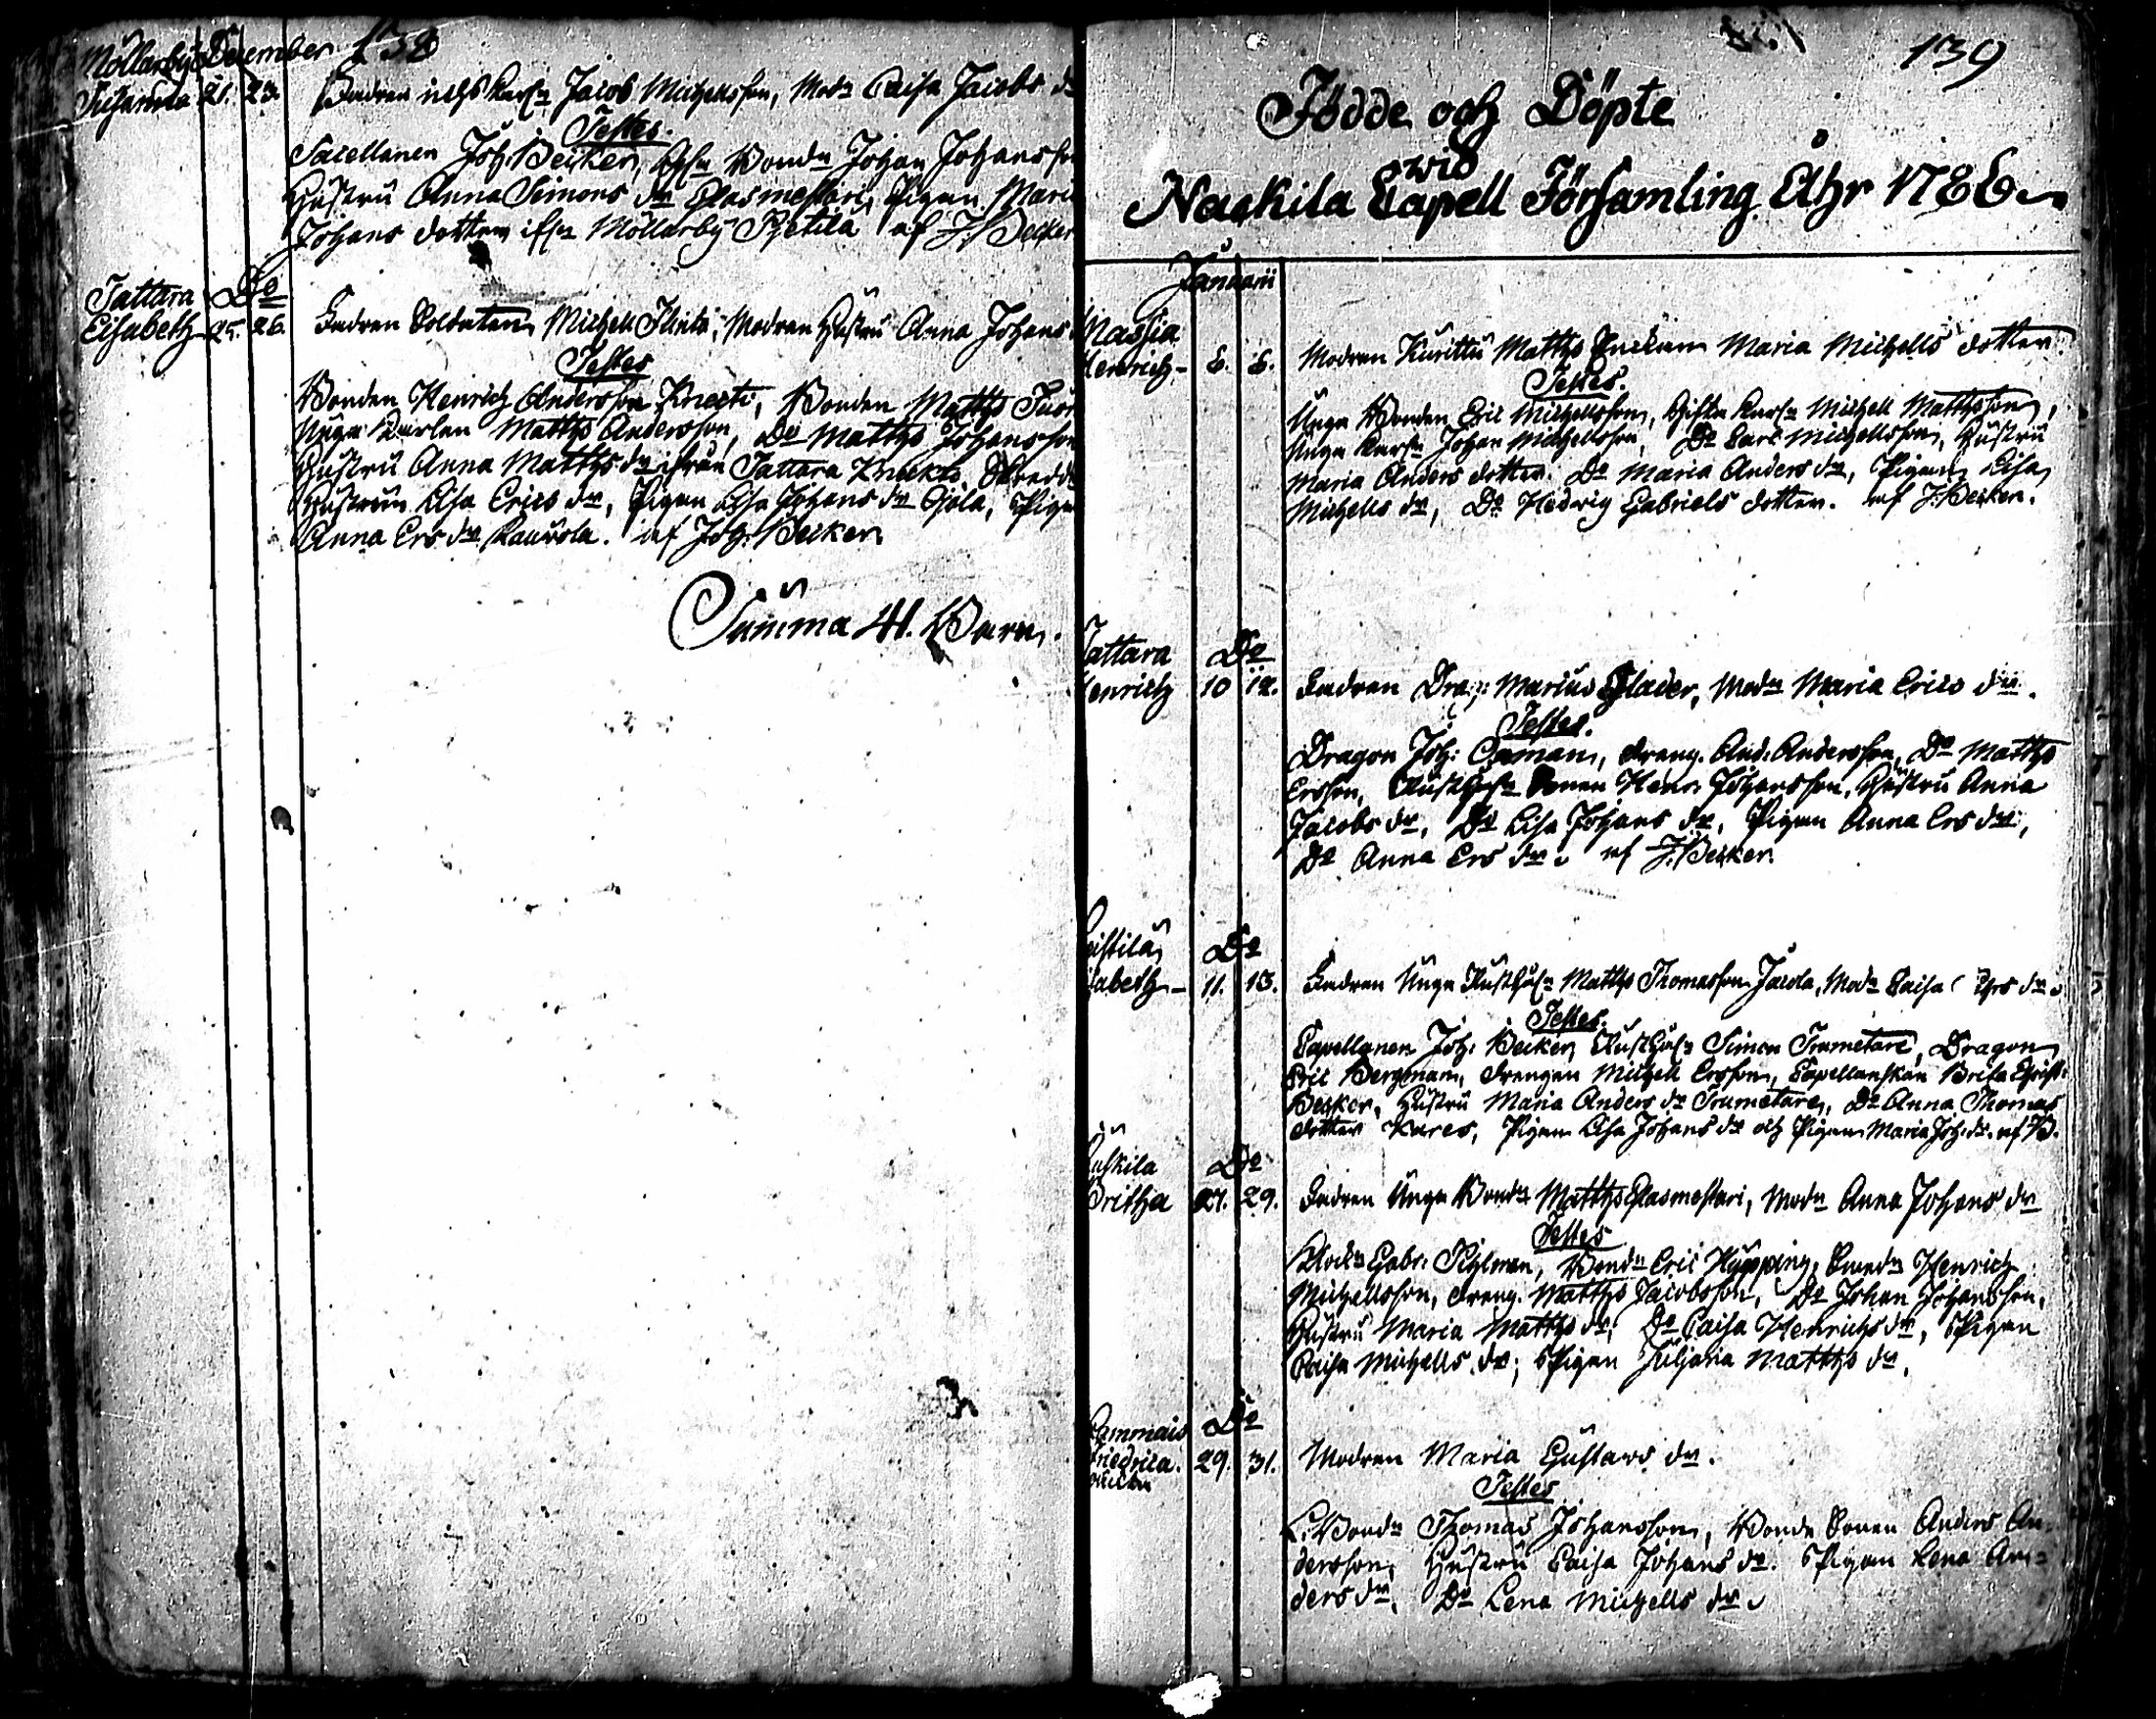 138
Möllarby December
Susanna 21. 23. Fadren Jacob Michellsson, Modr Caisa Jacobs dr
Testes.
Sacellanen Joh: Becker, Bonden Johan Johansson
Hustru Anna Simons dr Glasmestari, Pigan Maria
Johans dotter ifrn Möllarby Pjetilä af J: Becker
Tattara Do
Elisabeth 25. 26. Fadren Soldaten Michell Flinta, Modren Hustru Anna Johans
Testes
Bonden Henrich Andersson Knecti, Bonden Matths
Unga Karlen Matths Andersson, Do Matths Johansson
Hustru Anna Matths dr ifrån Tattara Knekti,
Hustrun Lisa Erics dr, Pigan Lisa Johans dr Ojola, Pigan
Anna Ers dr Kaurola. af Joh: Becker
Summa 41. Barn.
139
Födde och Döpte
wid
Nackila Capell Församling Åhr 1786
Januarii
Massia
Henrich 6. 6. Modren Matths Maria Michells dotter.
Testes.
Unga Bonden Eric Michellsson, Michell Matthsson,
Unga Johan Michellsson, Do Carl Michellsson, Hustru
Maria Anders dotter. Do Maria Anders dr, Pigan Lisa
Michells dr, Do Hedwig Gabriels dotter. af J: Becker.
Tattara Do
Henrich 10 12. Fadren Drag: Marius Glader, Modr Maria Erics dr.
Testes.
Dragon Joh: Oxman, dreng. And: Andersson, Do Matths
Ersson, Sonen Henr: Johansson, Hustru Anna
Jacobs dr, Do Lisa Johans dr, Pigan Anna Ers dr,
Do Anna Ers dr. af J: Becker.
Do
Elisabeth 11. 13. Fadren Unga Matths Thomasson Jacola, Modr Caisa dr
Testes.
Capellanen Joh: Becker, Simon Trumetare, Dragon
Eric Bergman, drengen Michell Ersson, Capellanskan Brita Christ:
Becker, Hustru Maria Anders dr Trumetare, Do Anna Thomas
dotter Kares, Pigan Lisa Johans dr och Pigan Maria Joh: dr. af B.
Do
Britha 27. 29. Fadren Unga Bondn Matths Glasmestari, Modn Anna Johans dr
Testes
Klockn Gabr: Pihlman, Bondn Eric Hyöpping, Henrich
Michellsson, dreng. Matths Jacobsson, Do Johan Johansson,
Hustru Maria Matths dr, Do Caisa Henrichs dr, Pigan
Caisa Michells dr; Pigan Juljana Matths dr.
Kammais Do
Friedrica 29. 31. Modren Maria Gustavs dr.
Testes
Bondn Thomas Johansson, Bonde Sonen Anders An-
dersson, Hustru Caisa Johans dr. Pigan Lena An=
ders dr. Do Lena Michells dr